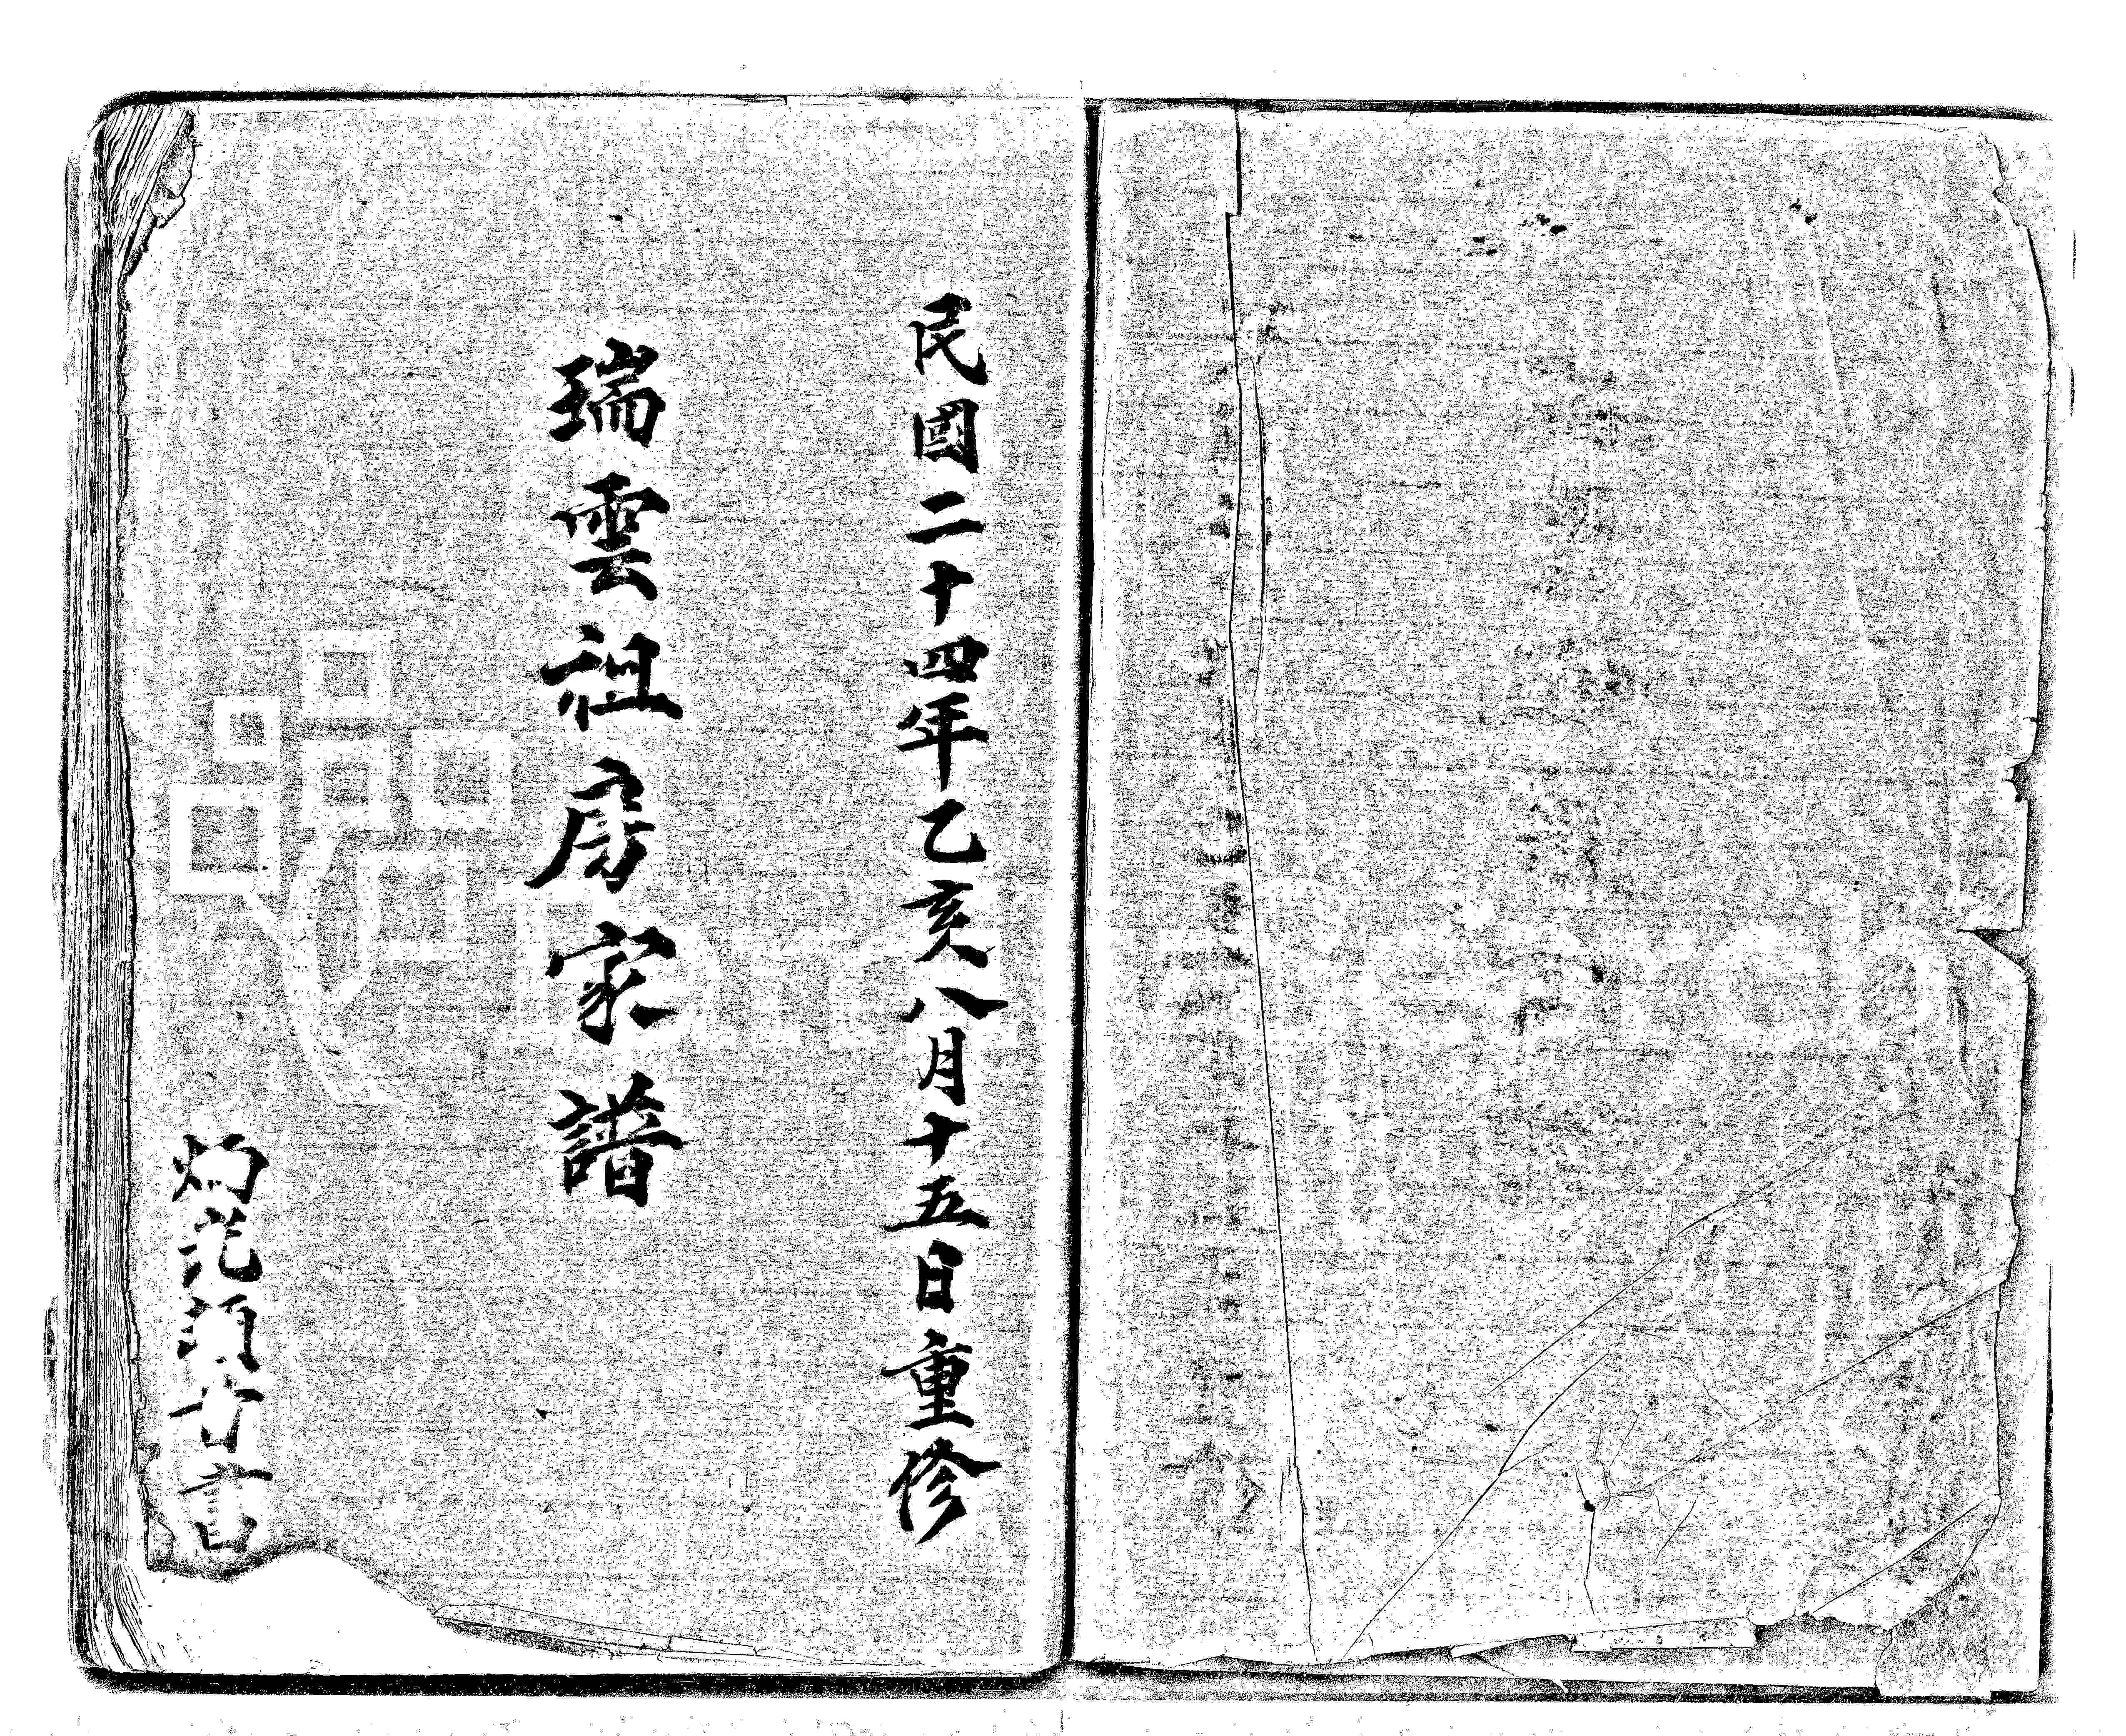 民國二十四年乙亥八月十五日重修
瑞雲祖房家譜
灼 書